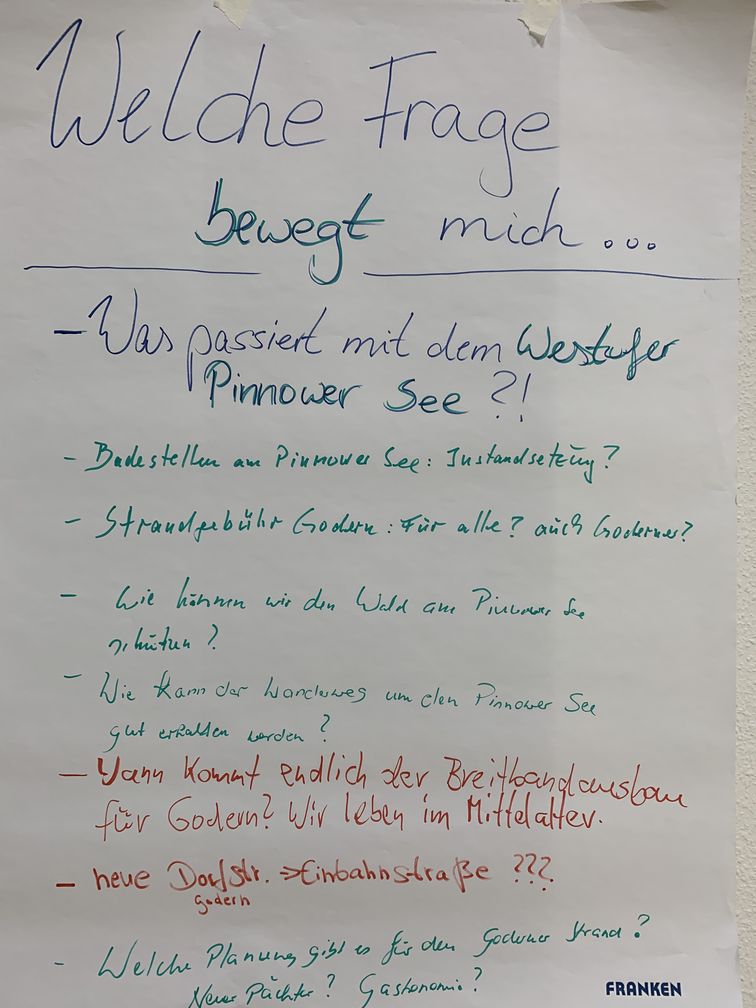 Welche Frage
bewegt mich...
- Was passiert mit dem Westufer
Pinnower See ?!
- Badestellen am Pinnower See: Instandsetzung?
- Strandgebühr Godern: Für alle? auch Goderner?
- Wie können wir den Wald am Pinnower See
schützen?
- Wie kann der Wanderweg um den Pinnower See
gut erhalten werden?
- Wann kommt endlich der Breitbandausbau
für Godern? Wir leben im Mittelalter.
- neue Dorfstr. => Einbahnstraße ???
Godern
- Welche Planung gibt es für den Goderner Strand?
Neuer Pächter? Gastronomie?
FRANKEN